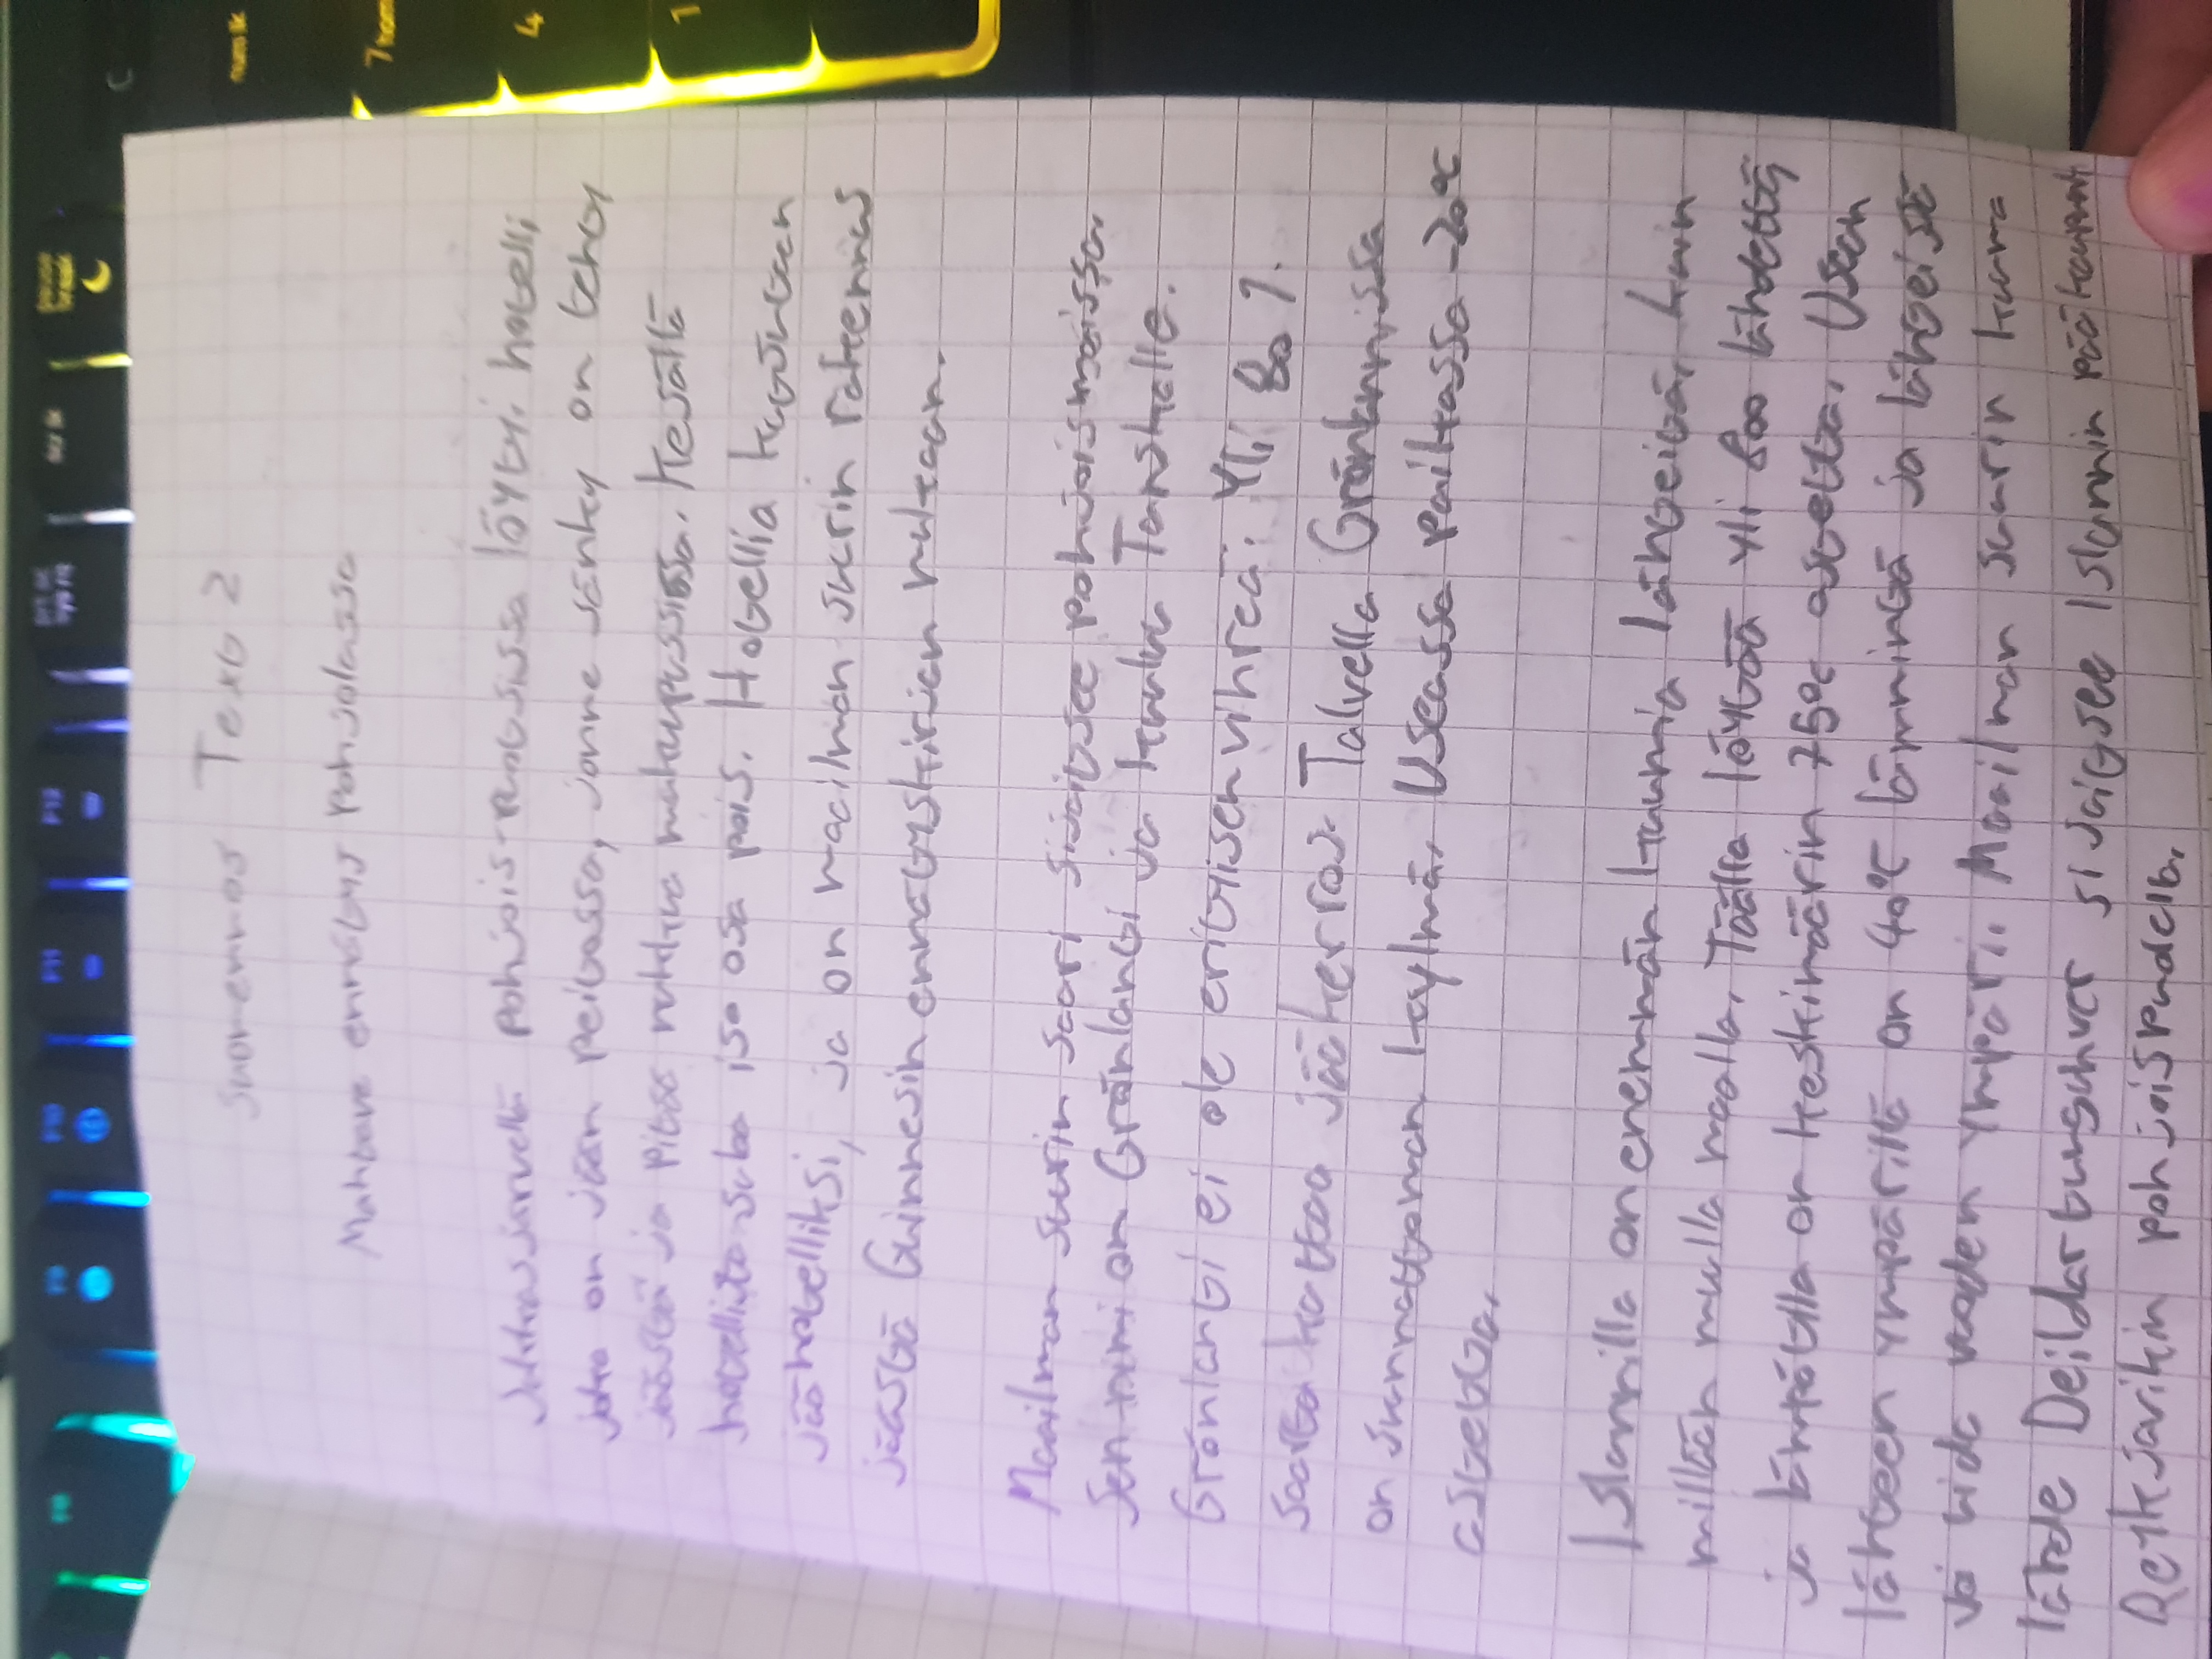 Suomennos Text 2
Mahtave ennätys pohjolassa
Jukkasjärvellä pohjois-ruotsissa löytyi hotelli
joka on jään peitossa, jonne sänky on tehty
jäästä ja pitää nukkua makuupussissa. Kesällä
hotellista sulaa iso osa pois. Hotellia kutsutaan
jäähotelliksi, ja on maailman suurin rakennus
jäästä Guinnesin ennätyskirjan mukaan.
Maailman suurin saari sijaitsee pohjoismaissa.
Sen nimi on Grönlanti ja kuuluu Tanskalle.
Grönlanti ei ole erityisen vihreä. Yli 80 %
saarta kattaa jääkerros. Talvella Grönlannissa
on suunnattoman kaylmää, Useassa paikassa -20°C
astetta.
Islannilla on enemmän kuumia lähteitä, kuin
millään muulla maalla. Täällä löytää yli 800 lähdettä
ja lämpötila on keskimäärin 75°C astetta. Usean
lähteen ympärillä on 40°C lämmintä ja lähteistä
voi uida vuoden ympäri. Maailman suurin kuuma
lähde Deildartunguhver sijaitsee Islannin pääkaupunki
Reykjavikin pohjoispuolella.